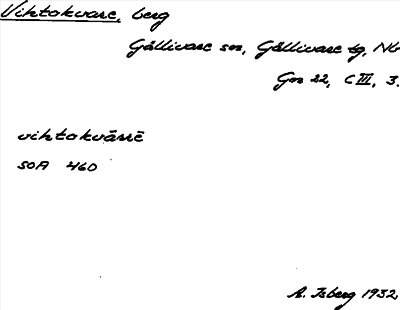 Vihtokvare, berg
Gällivare sn, Gällivare tg, Nb
Gn 22, C III, 3.
vihtokvārrē
SOA 460
A. Isberg 1932.